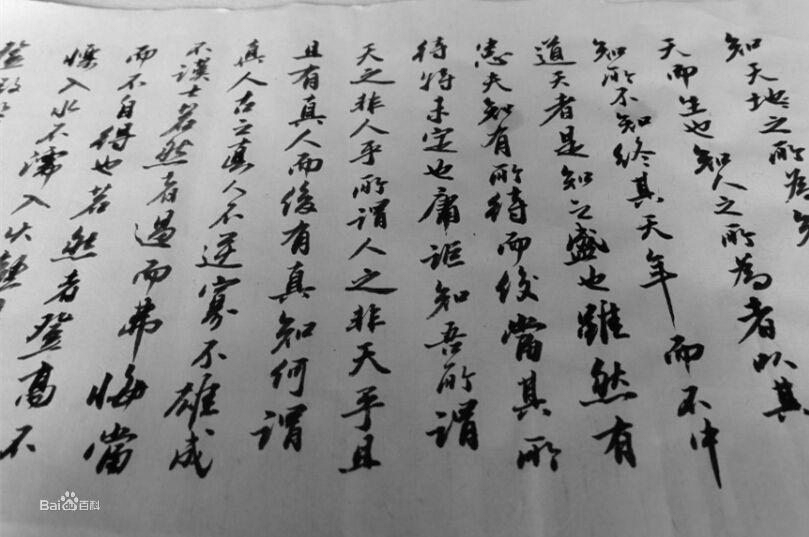 知天地之所為
天而生也知人之所為者以其
知所不知終其天年而不中
道夭者是知之盛也雖然有
患夫知有所待而後當其所
待特未定也庸詎知吾所謂
天之非人乎所謂人之非天乎且
且有真人而後有真知何謂
真人古之真人不逆寡不雄成
不謨士若然者過而弗悔當
而不自得也若然者登高不
慄入水不濡入火熱
登假
Bai百科